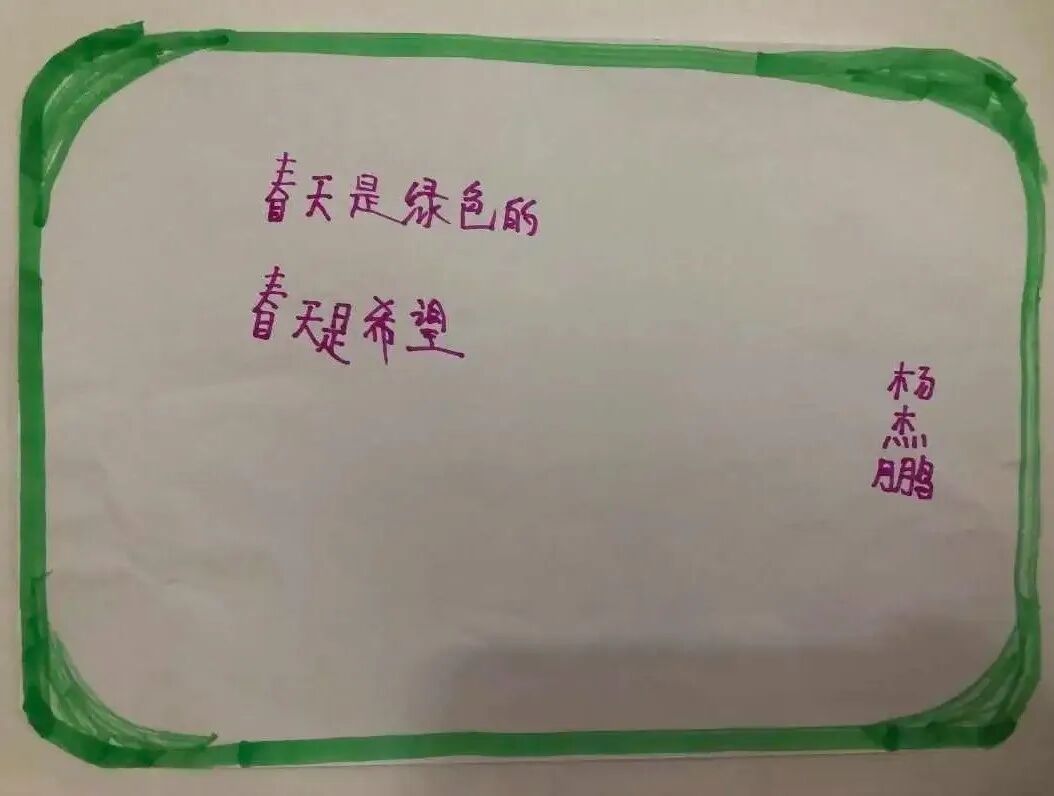 春天是绿色的
春天是希望
杨杰鹏